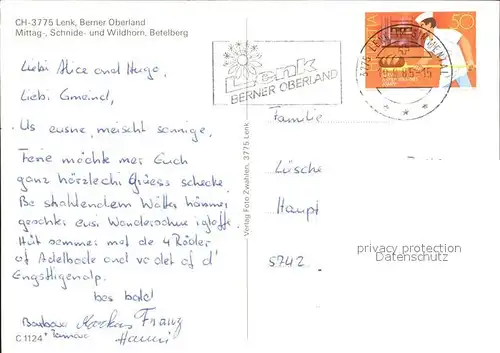 CH-3775 Lenk, Berner Oberland
Mittag-, Schneide- und Wildhorn, Betelberg
Liebi Alice and Hugo,
Liebi Gmeind,
Us eusne, meischt sonnige,
Ferie möchte mer Euch
ganz härzlechi Grüess schecke.
Be strahlendem Wätter hämmer
geschter eusi Wanderschue igloffe.
Hüt semmer met de 4 Räder
of Adelbode and vo det of d'
Engstligenalp.
bes bald
Barbara Markus Franz
Hanni
C 1124
Verlag Foto Zwahlen, 3775 Lenk
Lenk
BERNER OBERLAND
3775 LENK
50
Familie
Lüscher
Haupt
5742
privacy protection
Datenschutz